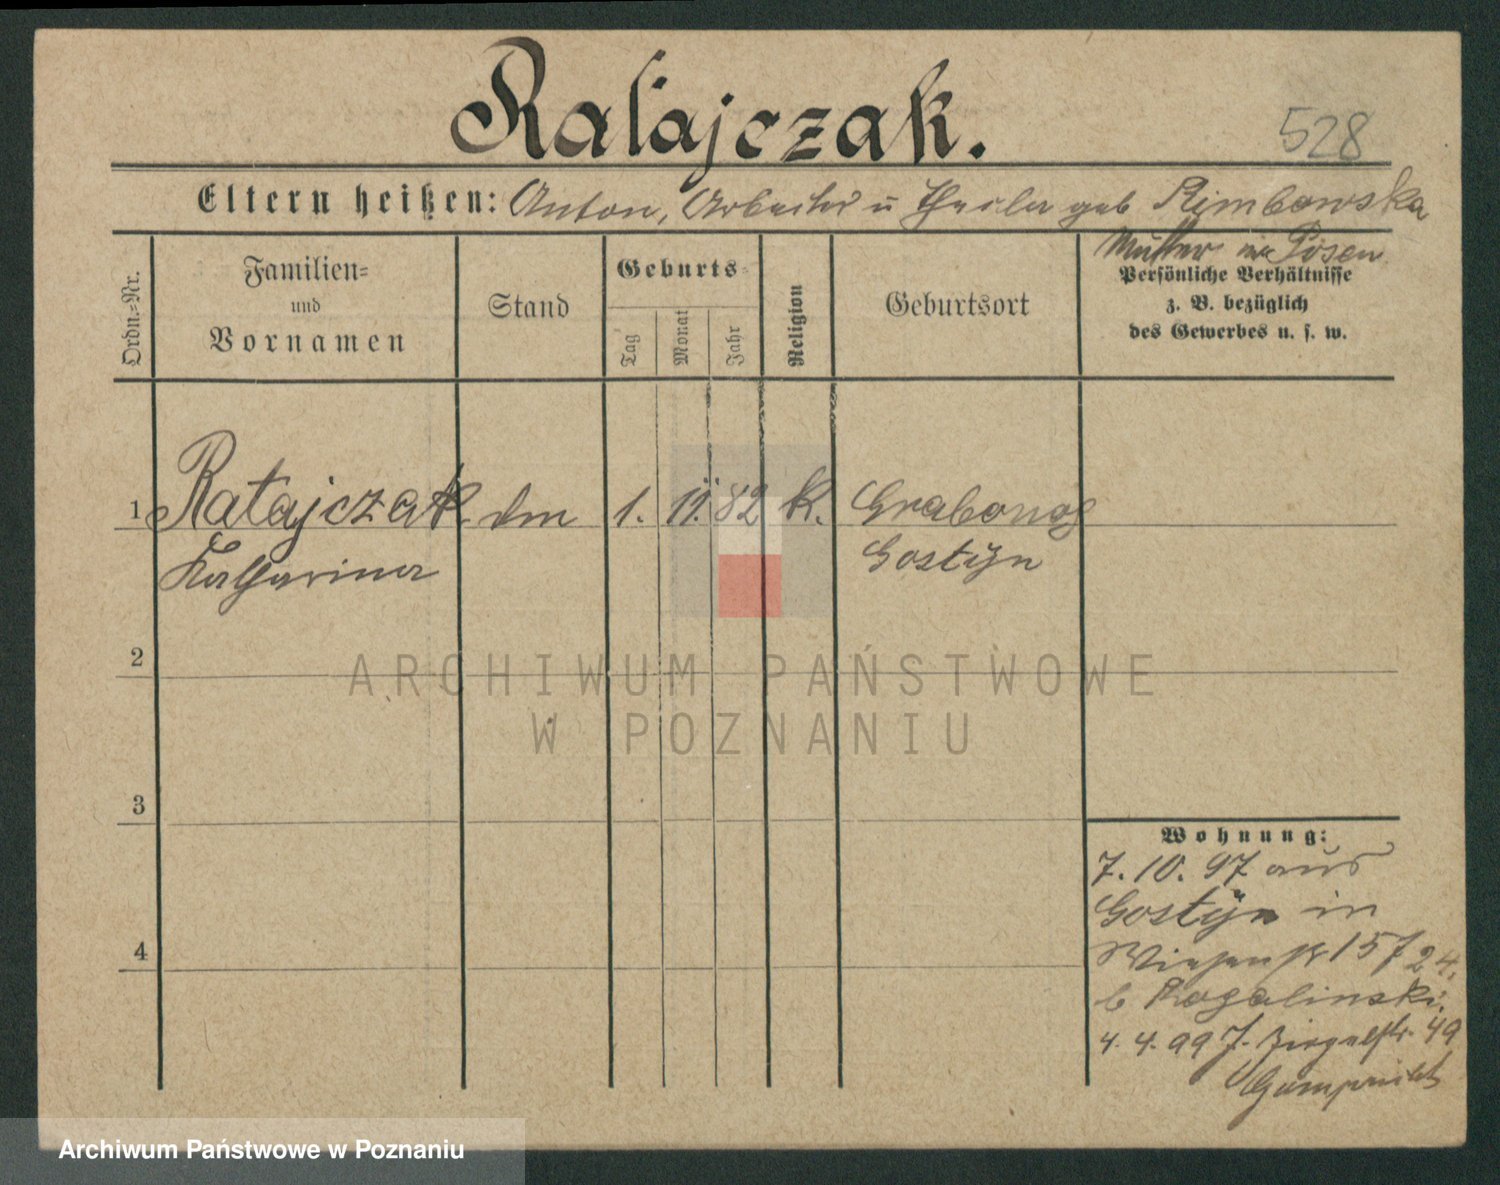 Ratajczak.
528
Eltern heißen: Anton, Arbeiter u geb Rimbowska
Mutter in Posen
Ordn.=Nr.
Familien=
und
Vornamen
Stand
Geburts=
Tag
Monat
Jahr
Religion
Geburtsort
Persönliche Verhältnisse
z. B. bezüglich
des Gewerbes u. s. w.
1 Ratajczak dm 1. 11. 82 k. Grabonog
Katharina Gostÿn
2
3
4
Wohnung:
7. 10. 97 aus
Gostÿn in
Wiesenstr 15 24.
b Rogalinski.
4. 4. 99 J. 49
ARCHIWUM PAŃSTWOWE
W POZNANIU
Archiwum Państwowe w Poznaniu